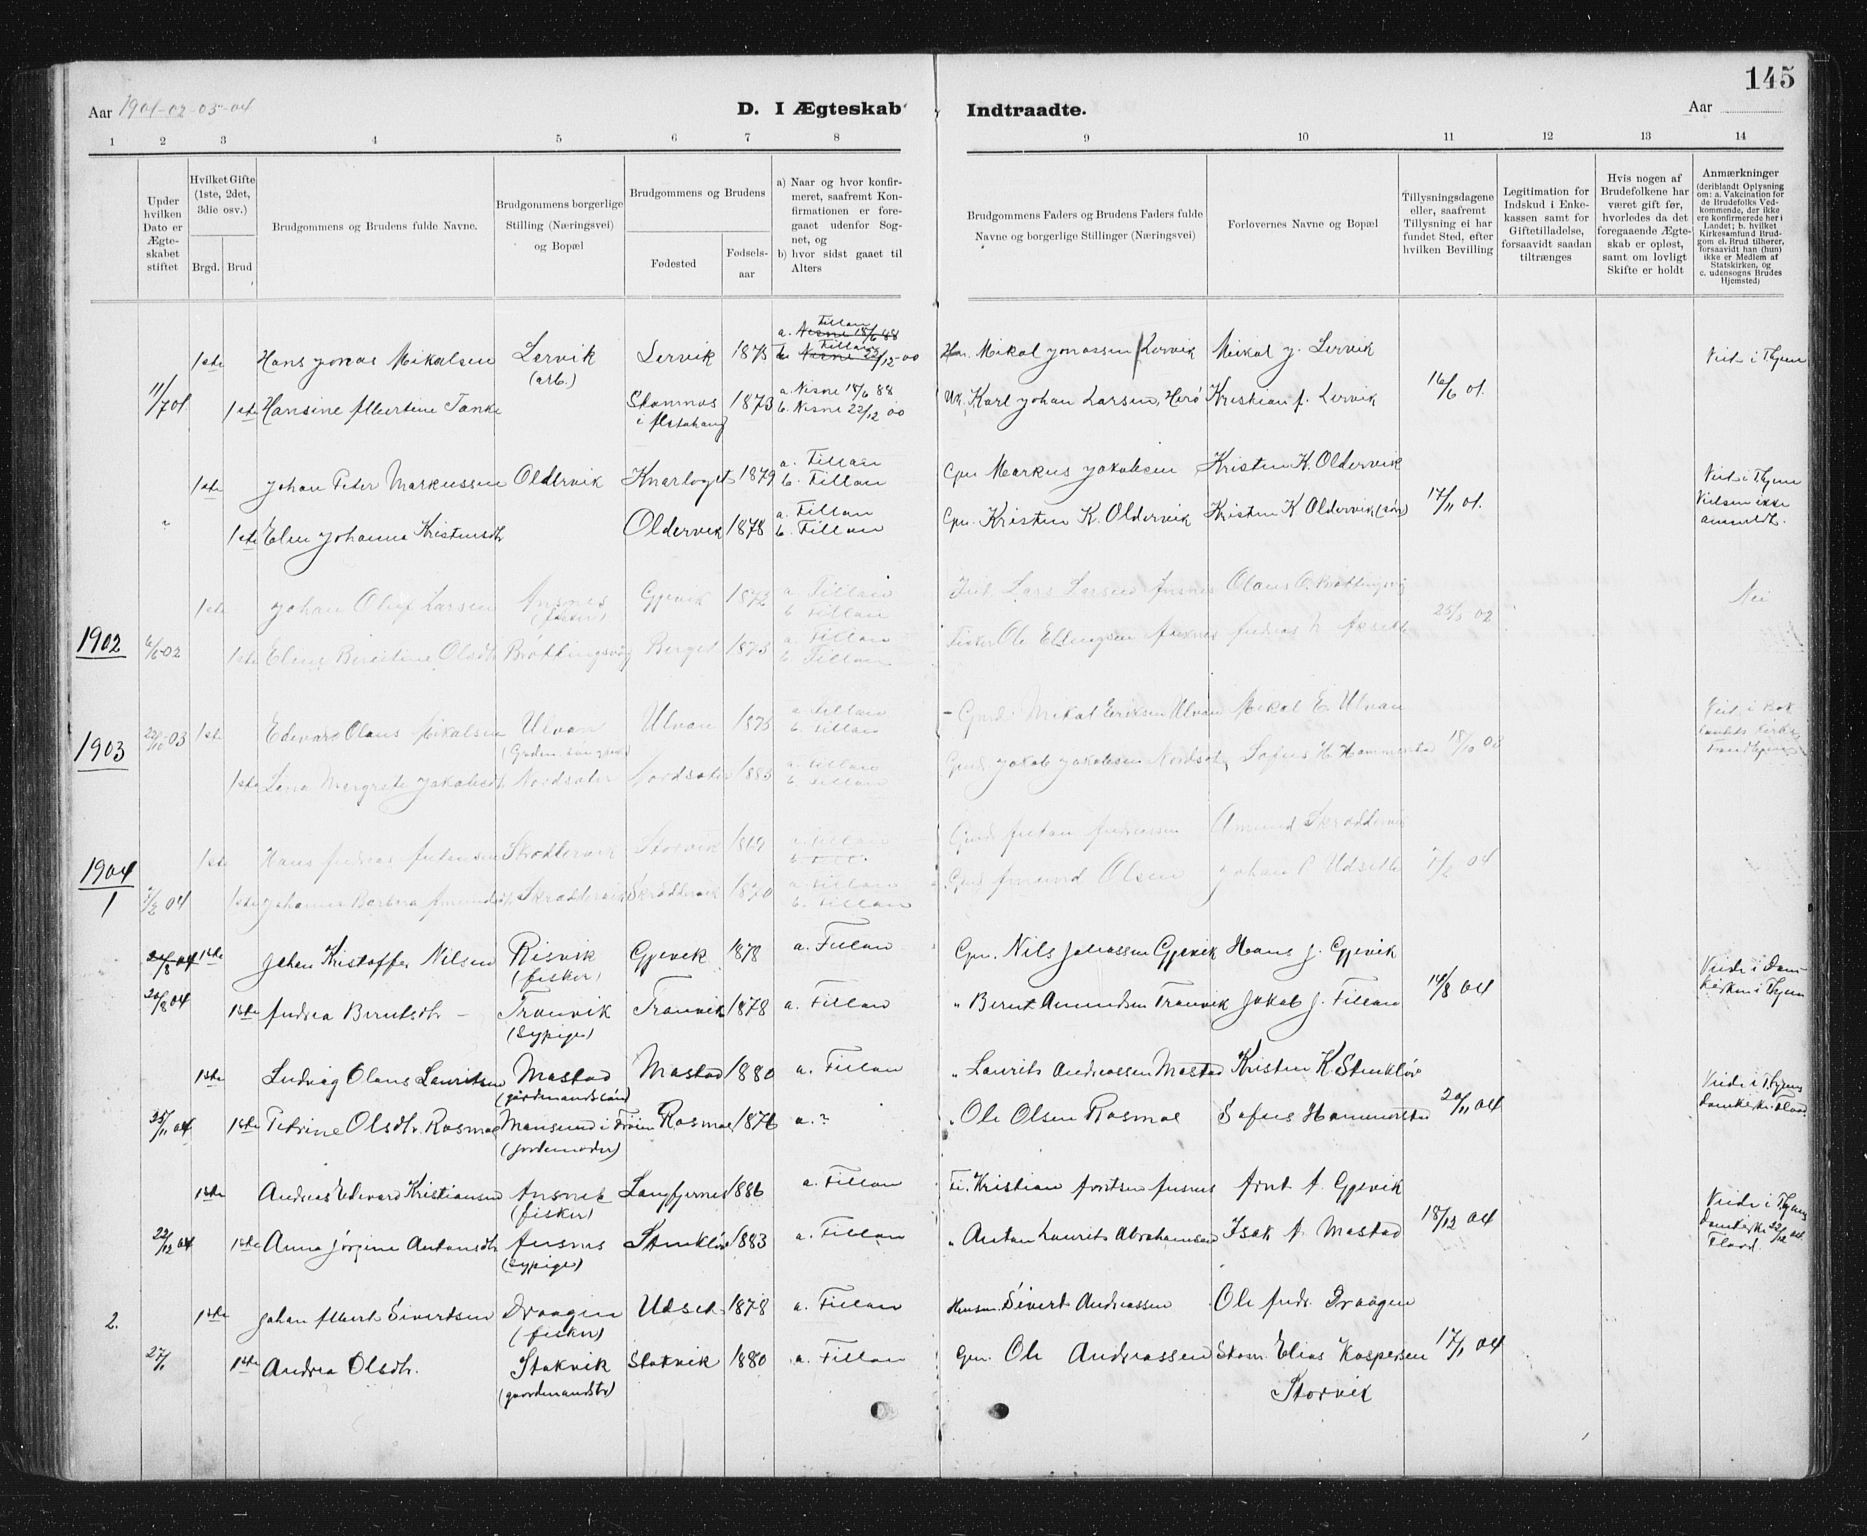 145
Aar 1901-02-03-04
D. I Ægteskab Indtraadte.
Aar
1 2 3 4 5 6 7 8 9 10 11 12 13 14
Under hvilken Dato er Ægteskabet stiftet
Hvilket Gifte (1ste, 2det, 3die osv.)
Brgd. Brud
Brudgommens og Brudens fulde Navne.
Brudgommens borgerlige Stilling (Næringsvei) og Bopæl
Brudgommens og Brudens
Fødested
Fødselsaar
a) Naar og hvor konfirmeret, saafremt Konfirmationen er foregaaet udenfor Sognet, og
b) hvor sidst gaaet til Alters
Brudgommens Faders og Brudens Faders fulde Navne og borgerlige Stillinger (Næringsvei)
Forlovernes Navne og Bopæl
Tillysningsdagene eller, saafremt Tillysning ei har fundet Sted, efter hvilken Bevilling
Legitimation for Indskud i Enkekassen samt for Giftetilladelse, forsaavidt saadan tiltrænges
Hvis nogen af Brudefolkene har været gift før, hvorledes da det foregaaende Ægteskab er opløst, samt om lovligt Skifte er holdt
Anmærkninger
(deriblandt Oplysning om: a. Vakcination for de Brudefolks Vedkommende, der ikke ere konfirmerede her i Landet; b. hvilket Kirkesamfund Brudgom el. Brud tilhører, forsaavidt han (hun) ikke er Medlem af Statskirken, og c. udensogns Brudes Hjemsted)
1ste Hans Jonas Mikalsen Lervik (arb.) Lervik 1875 a. Fillan b. Fillan Mikal Jonassen Lervik Mikal J. Lervik Viet i Thjem
11/7 01 1ste Hansine Albertine Tanke Stamnæs i Alstahaug 1873 a. Nesne 18/6 88 b. Nesne 22/12 00 Karl Johan Larsen, Herö Kristian A. Lervik 16/6 01.
1ste Johan Peter Markussen Oldervik Knarlaget 1879 a. Fillan b. Fillan Gpn. Markus Jakobsen Kristen K. Oldervik Viet i Thjem
" 1ste Elen Johanna Kristensdtr Oldervik 1878 a. Fillan b. Fillan Gpn. Kristen K. Oldervik Kristen K Oldervik (søn) 17/11 01. Vielsen ikke anmeldt.
1ste Johan Oluf Larsen Ansnes (fisker) Gjevik 1872 a. Fillan b. Fillan Lars Larsen Ansnes Olaus O. Brattingsvig Nei
1902 6/6-02 1ste Elens Berettine Olsdtr Brattingsvåg Berget 1875 a. Fillan b. Fillan Fisker Ole Ellingsen Ansnes Andreas N. Aseth 25/5 02
1903 22/10-03 1ste Edevard Olaus Mikalsen Ulvan Ulvan 1875 a. Fillan b. Fillan - Gmd. Mikal Eriksen Ulvan Mikal E. Ulvan
1ste Lena Margrete Jakobsdtr. Nordsæter Nordsæter 1883 a. Fillan b. Fillan Gmd. Jakob Jakobsen Nordsæter Sofus H. Hammerstad 18/10 03
1ste Hans Andreas Antonsen Skrødtervik Storvik 1869 a. Fillan b. Fill. Gmd. Anton Andreassen Amund Skrøddervig
1904
1 7/2 04 1ste Johanna Barbara Amundsdtr. Skrøddervik Skrøddervik 1870 a. Fillan b. Fillan Gmd. Amund Olsen Johan P. Udseth 7/2 04
20/8 04 1ste Johan Kristoffer Nilsen Risvik (fisker) Gjevik 1878 a. Fillan Gpn. Nils Johassen Gjevik Hans J. Gjevik Viede i Domkirken i Thjem
20/8 04 1ste Andrea Berntsdtr - Tranvik (sypige) Tranvik 1878 a. Fillan " Bernt Amundsen Tranvik Jakob J. Fillan 14/8 04
1ste Ludvig Olaus Lauritsen Mastad (gårdmandssön) Mastad 1880 a. Fillan " Laurits Andreassen Mastad Kristen K. Stenklöv Viede i Thjems Domkirke
25/11 04 1ste Petrine Olsdtr. Rosmoe Mausund i Fröien (jordemoder) Rosmoe 1876 a. ? " Ole Olsen Rosmoe Sofus Hammerstad 20/11 04
1ste Andreas Edevard Kristiansen Ansnes (fisker) Langfjernes 1886 a. Fillan Fi. Kristian Arntsen Ansnes Arnt A. Gjevik Viede i Thjems Domkirke 22/12 04
22/12 04 1ste Anna Jörgine Antonsdtr Ansnes (sypige) Stenklöv 1883 a. Fillan " Anton Laurits Abrahamsen Isak A. Mastad 18/12 04
2. 1ste Johan Albert Sivertsen Draagen (fisker) Udset 1878 a. Fillan Husm. Sivert Andreassen Ole Andr. Draagen
27/1 1ste Andrea Olsdtr. Stokvik (gaardmandsdtr) Stokvik 1880 a. Fillan Gpn. Ole Andreassen Elias Kaspersen Storvik 17/1 04